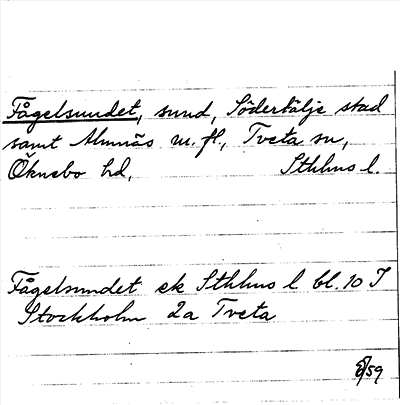 Fågelsundet, sund, Södertälje stad
samt Almnäs m. fl., Tveta sn,
Öknebo hd, Sthlms l.
Fågelsundet ek Sthlms l bl. 10 I
Stockholm 2a Tveta
/59